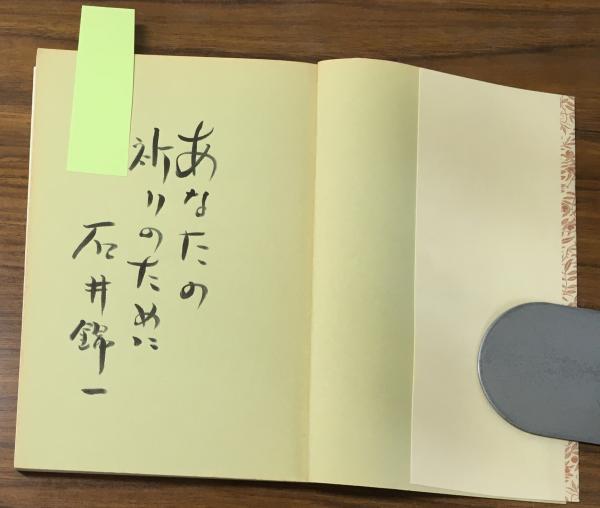 あなたの
祈りのために
石井錦一